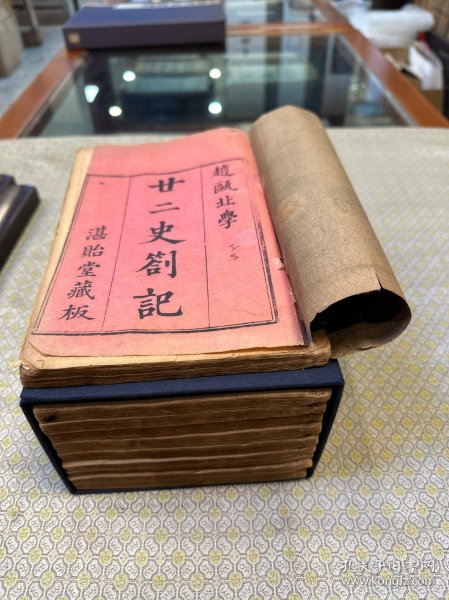 趙甌北學
廿二史劄記
湛貽堂藏板
孔夫子旧书网
www.kongfz.com